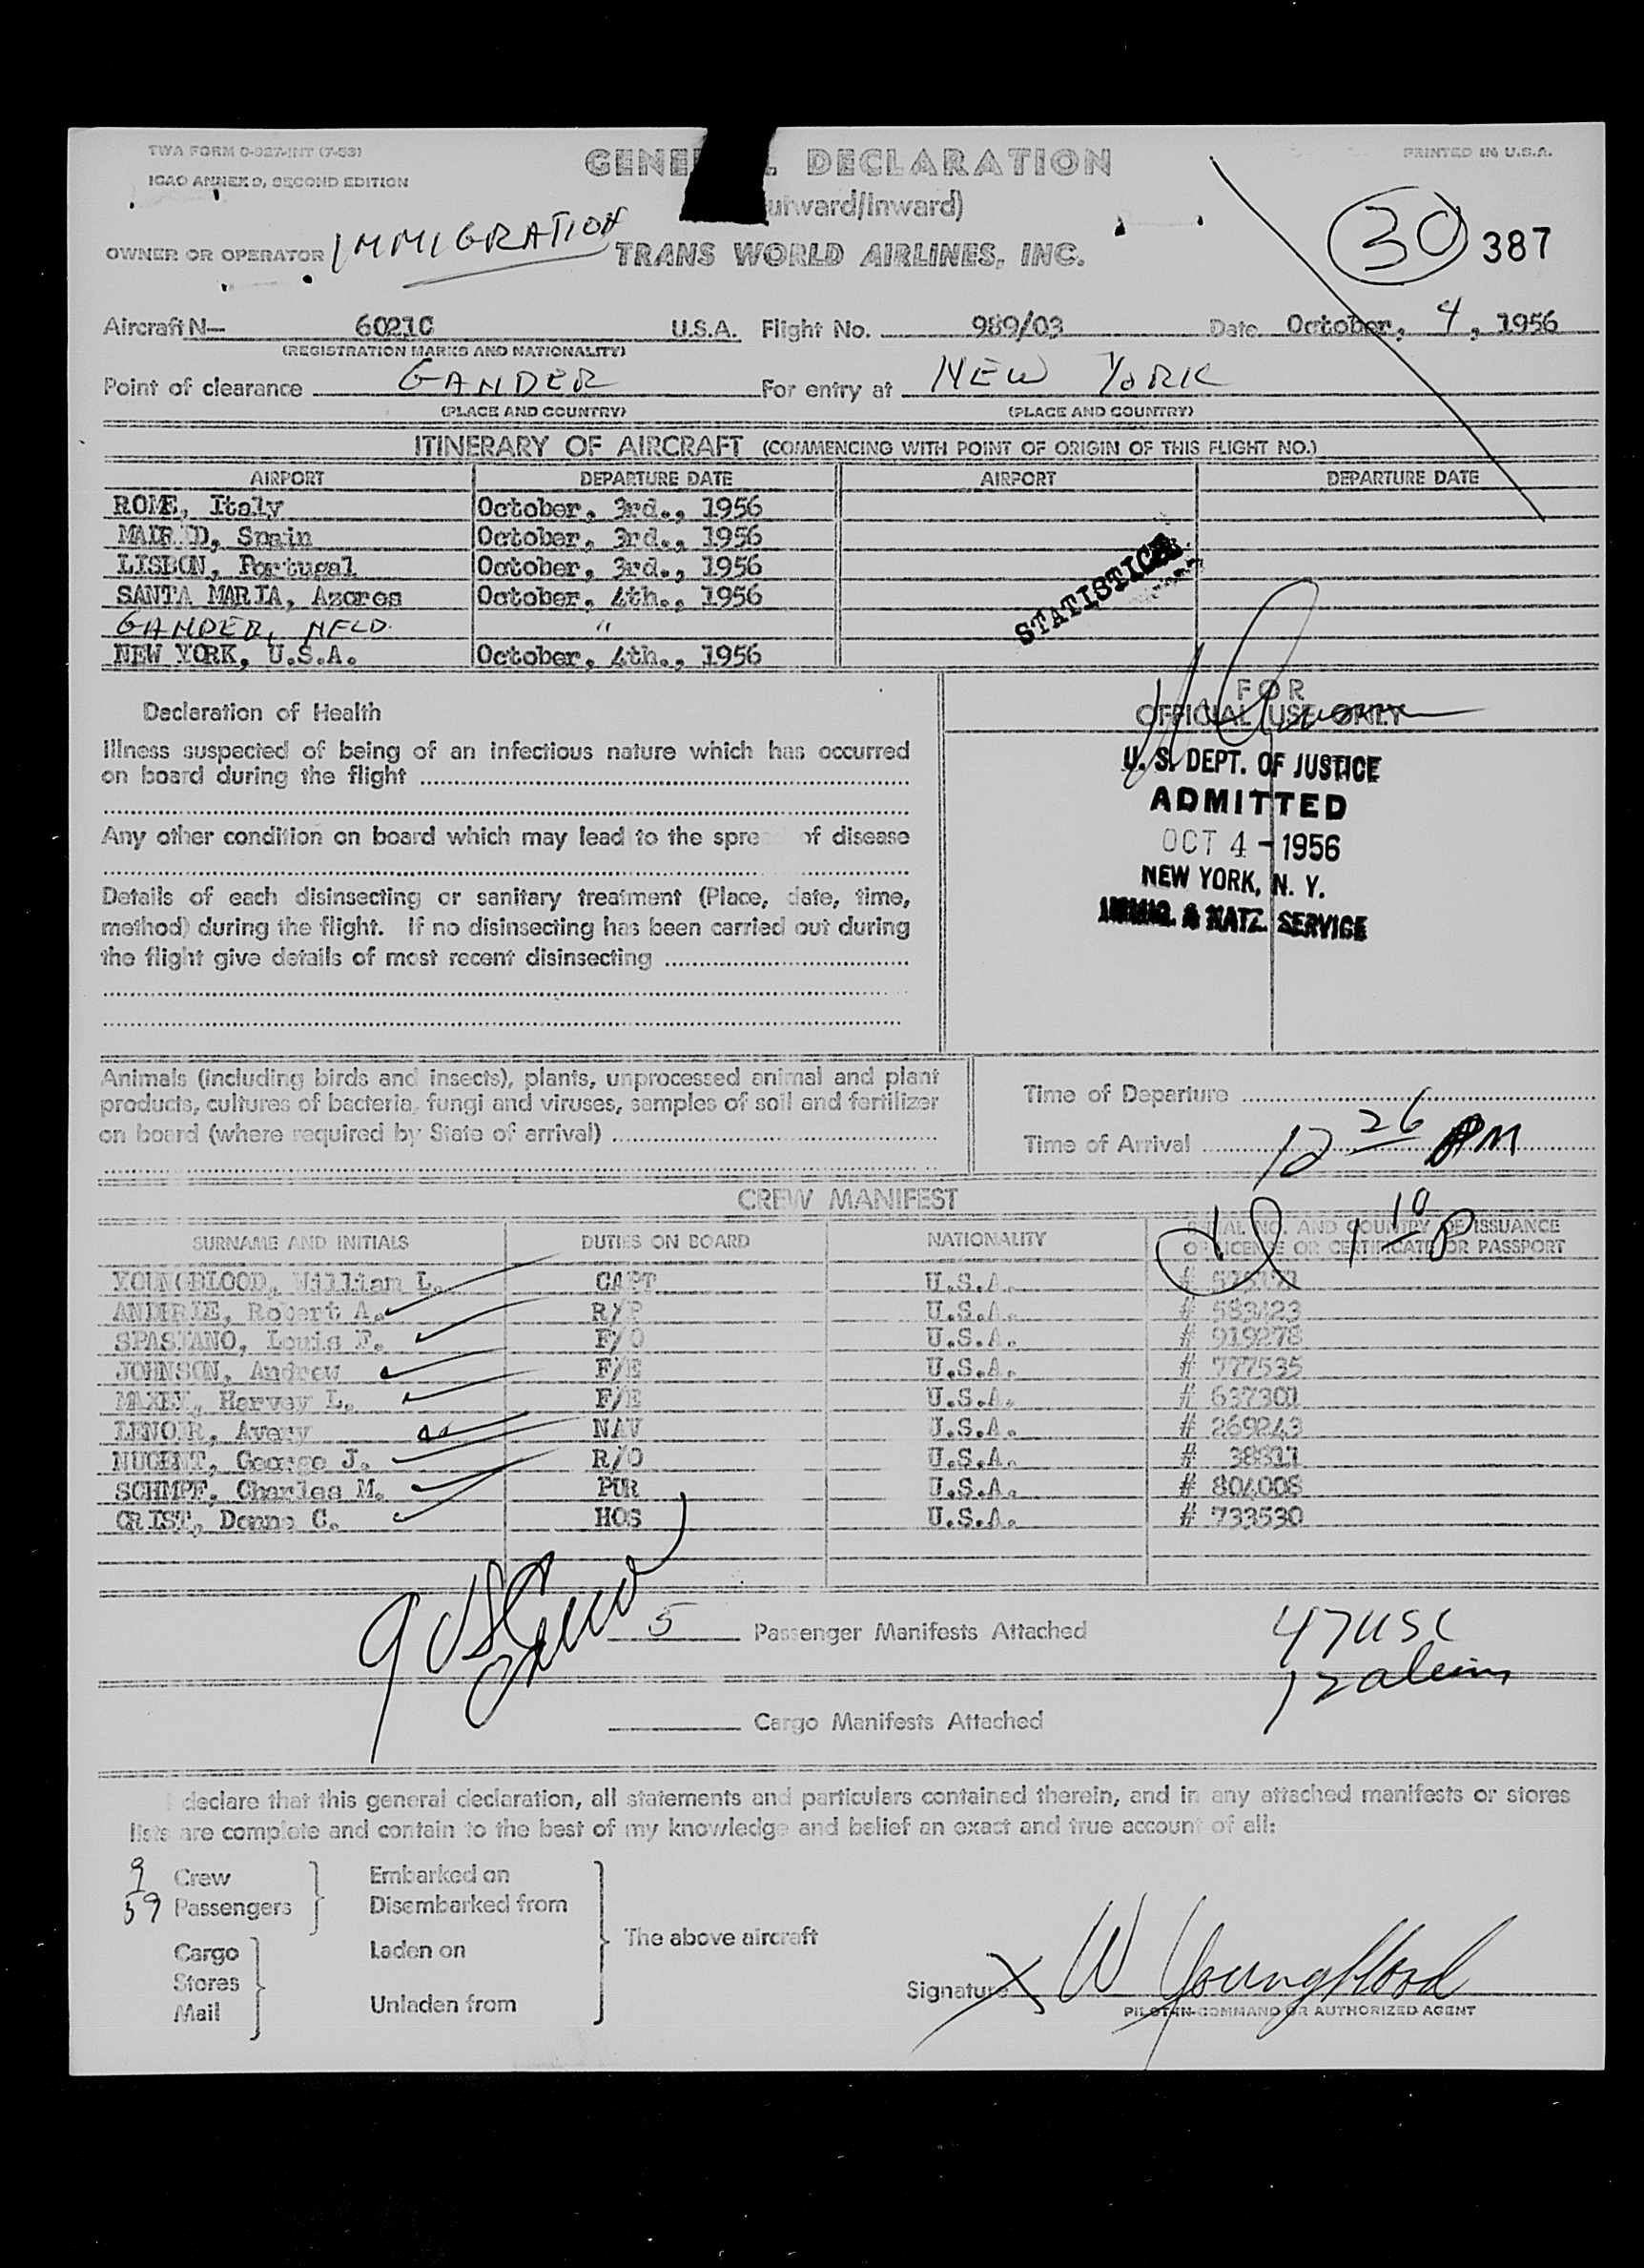 TWA FORM O-327-INT (7-53)
PRINTED IN U.S.A.
ICAO ANNEX 9, SECOND EDITION
DECLARATION
IMMIGRATION
(30) 387
OWNER OR OPERATOR
TRANS WORLD AIRLINES, INC.
Aircraft N— 6021C U.S.A. Flight No. 989/03 Date October, 4, 1956
(REGISTRATION MARKS AND NATIONALITY)
Point of clearance GANDER For entry at NEW YORK
(PLACE AND COUNTRY) (PLACE AND COUNTRY)
ITINERARY OF AIRCRAFT (COMMENCING WITH POINT OF ORIGIN OF THIS FLIGHT NO.)
AIRPORT DEPARTURE DATE AIRPORT DEPARTURE DATE
ROME, Italy October, 3rd., 1956
Spain October, 3rd., 1956
LISBON, Portugal October, 3rd., 1956
SANTA MARIA, Azores October, 4th., 1956
GANDER, NFLD. "
NEW YORK, U.S.A. October, 4th., 1956
STATISTICS
Declaration of Health
Illness suspected of being of an infectious nature which has occurred
on board during the flight
Any other condition on board which may lead to the spre of disease
Details of each disinsecting or sanitary treatment (Place, date, time,
method) during the flight. If no disinsecting has been carried out during
the flight give details of most recent disinsecting
FOR
OFFICIAL USE ONLY
U. S. DEPT. OF JUSTICE
ADMITTED
OCT 4 - 1956
NEW YORK, N. Y.
IMMIG. & NATZ. SERVICE
Animals (including birds and insects), plants, unprocessed animal and plant
products, cultures of bacteria, fungi and viruses, samples of soil and fertilizer
on board (where required by State of arrival)
Time of Departure
Time of Arrival 12 26 PM
1 10 P
CREW MANIFEST
SURNAME AND INITIALS DUTIES ON BOARD NATIONALITY SERIAL NO. AND COUNTRY OF ISSUANCE
OF LICENSE OR CERTIFICATE OR PASSPORT
YOUNGBLOOD, William L. CAPT U.S.A. #
Robert A. U.S.A. # 583423
SPASTANO, Louis F. F/O U.S.A. # 919278
JOHNSON, Andrew F/E U.S.A. # 777535
MAXEY, Harvey L. F/E U.S.A. # 637301
LENOIR, Avery NAV U.S.A. # 269243
NUGENT, George J. R/O U.S.A. #
SCHMPF, Charles M. PUR U.S.A. # 804008
CRIST, Donna C. HOS U.S.A. # 733530
9 USC Crew
5 Passenger Manifests Attached
47 USC
12 aliens
Cargo Manifests Attached
I declare that this general declaration, all statements and particulars contained therein, and in any attached manifests or stores
lists are complete and contain to the best of my knowledge and belief an exact and true account of all:
9 Crew Embarked on
59 Passengers Disembarked from
The above aircraft
Cargo Laden on
Stores
Mail Unladen from
Signature X W Youngblood
PILOT-IN-COMMAND OR AUTHORIZED AGENT